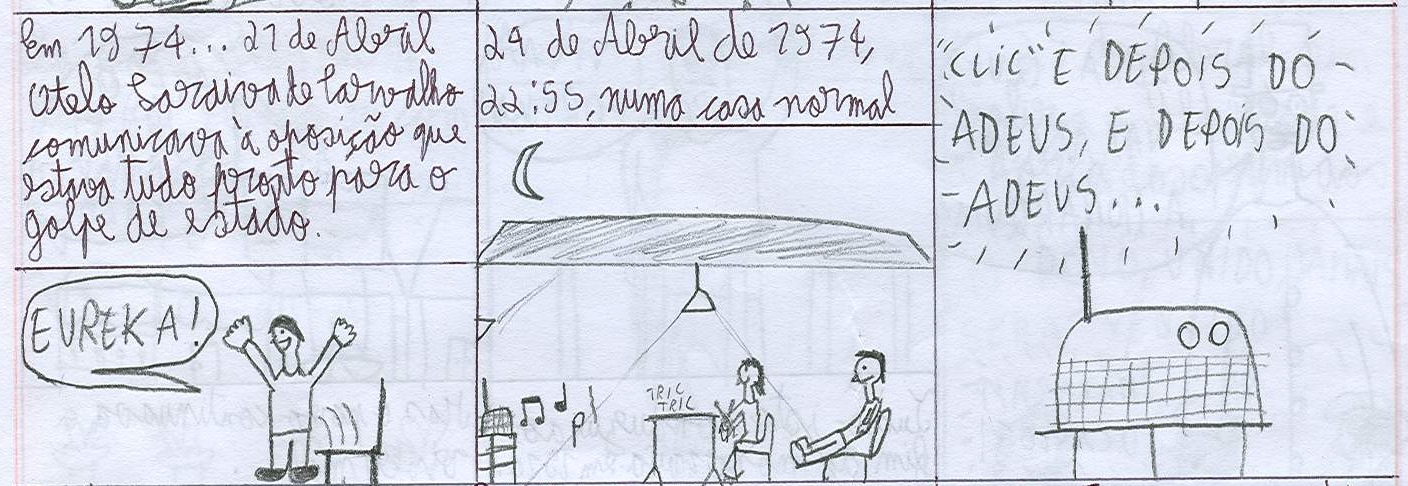 Em 1974... 21 de Abril
Otelo Saraiva de Carvalho
comunicava à oposição que
estava tudo pronto para o
golpe de estado.
EUREKA!
24 de Abril de 1974,
22:55, numa casa normal
TRIC
TRIC
"CLIC" E DEPOIS DO -
ADEUS, E DEPOIS DO
- ADEUS...